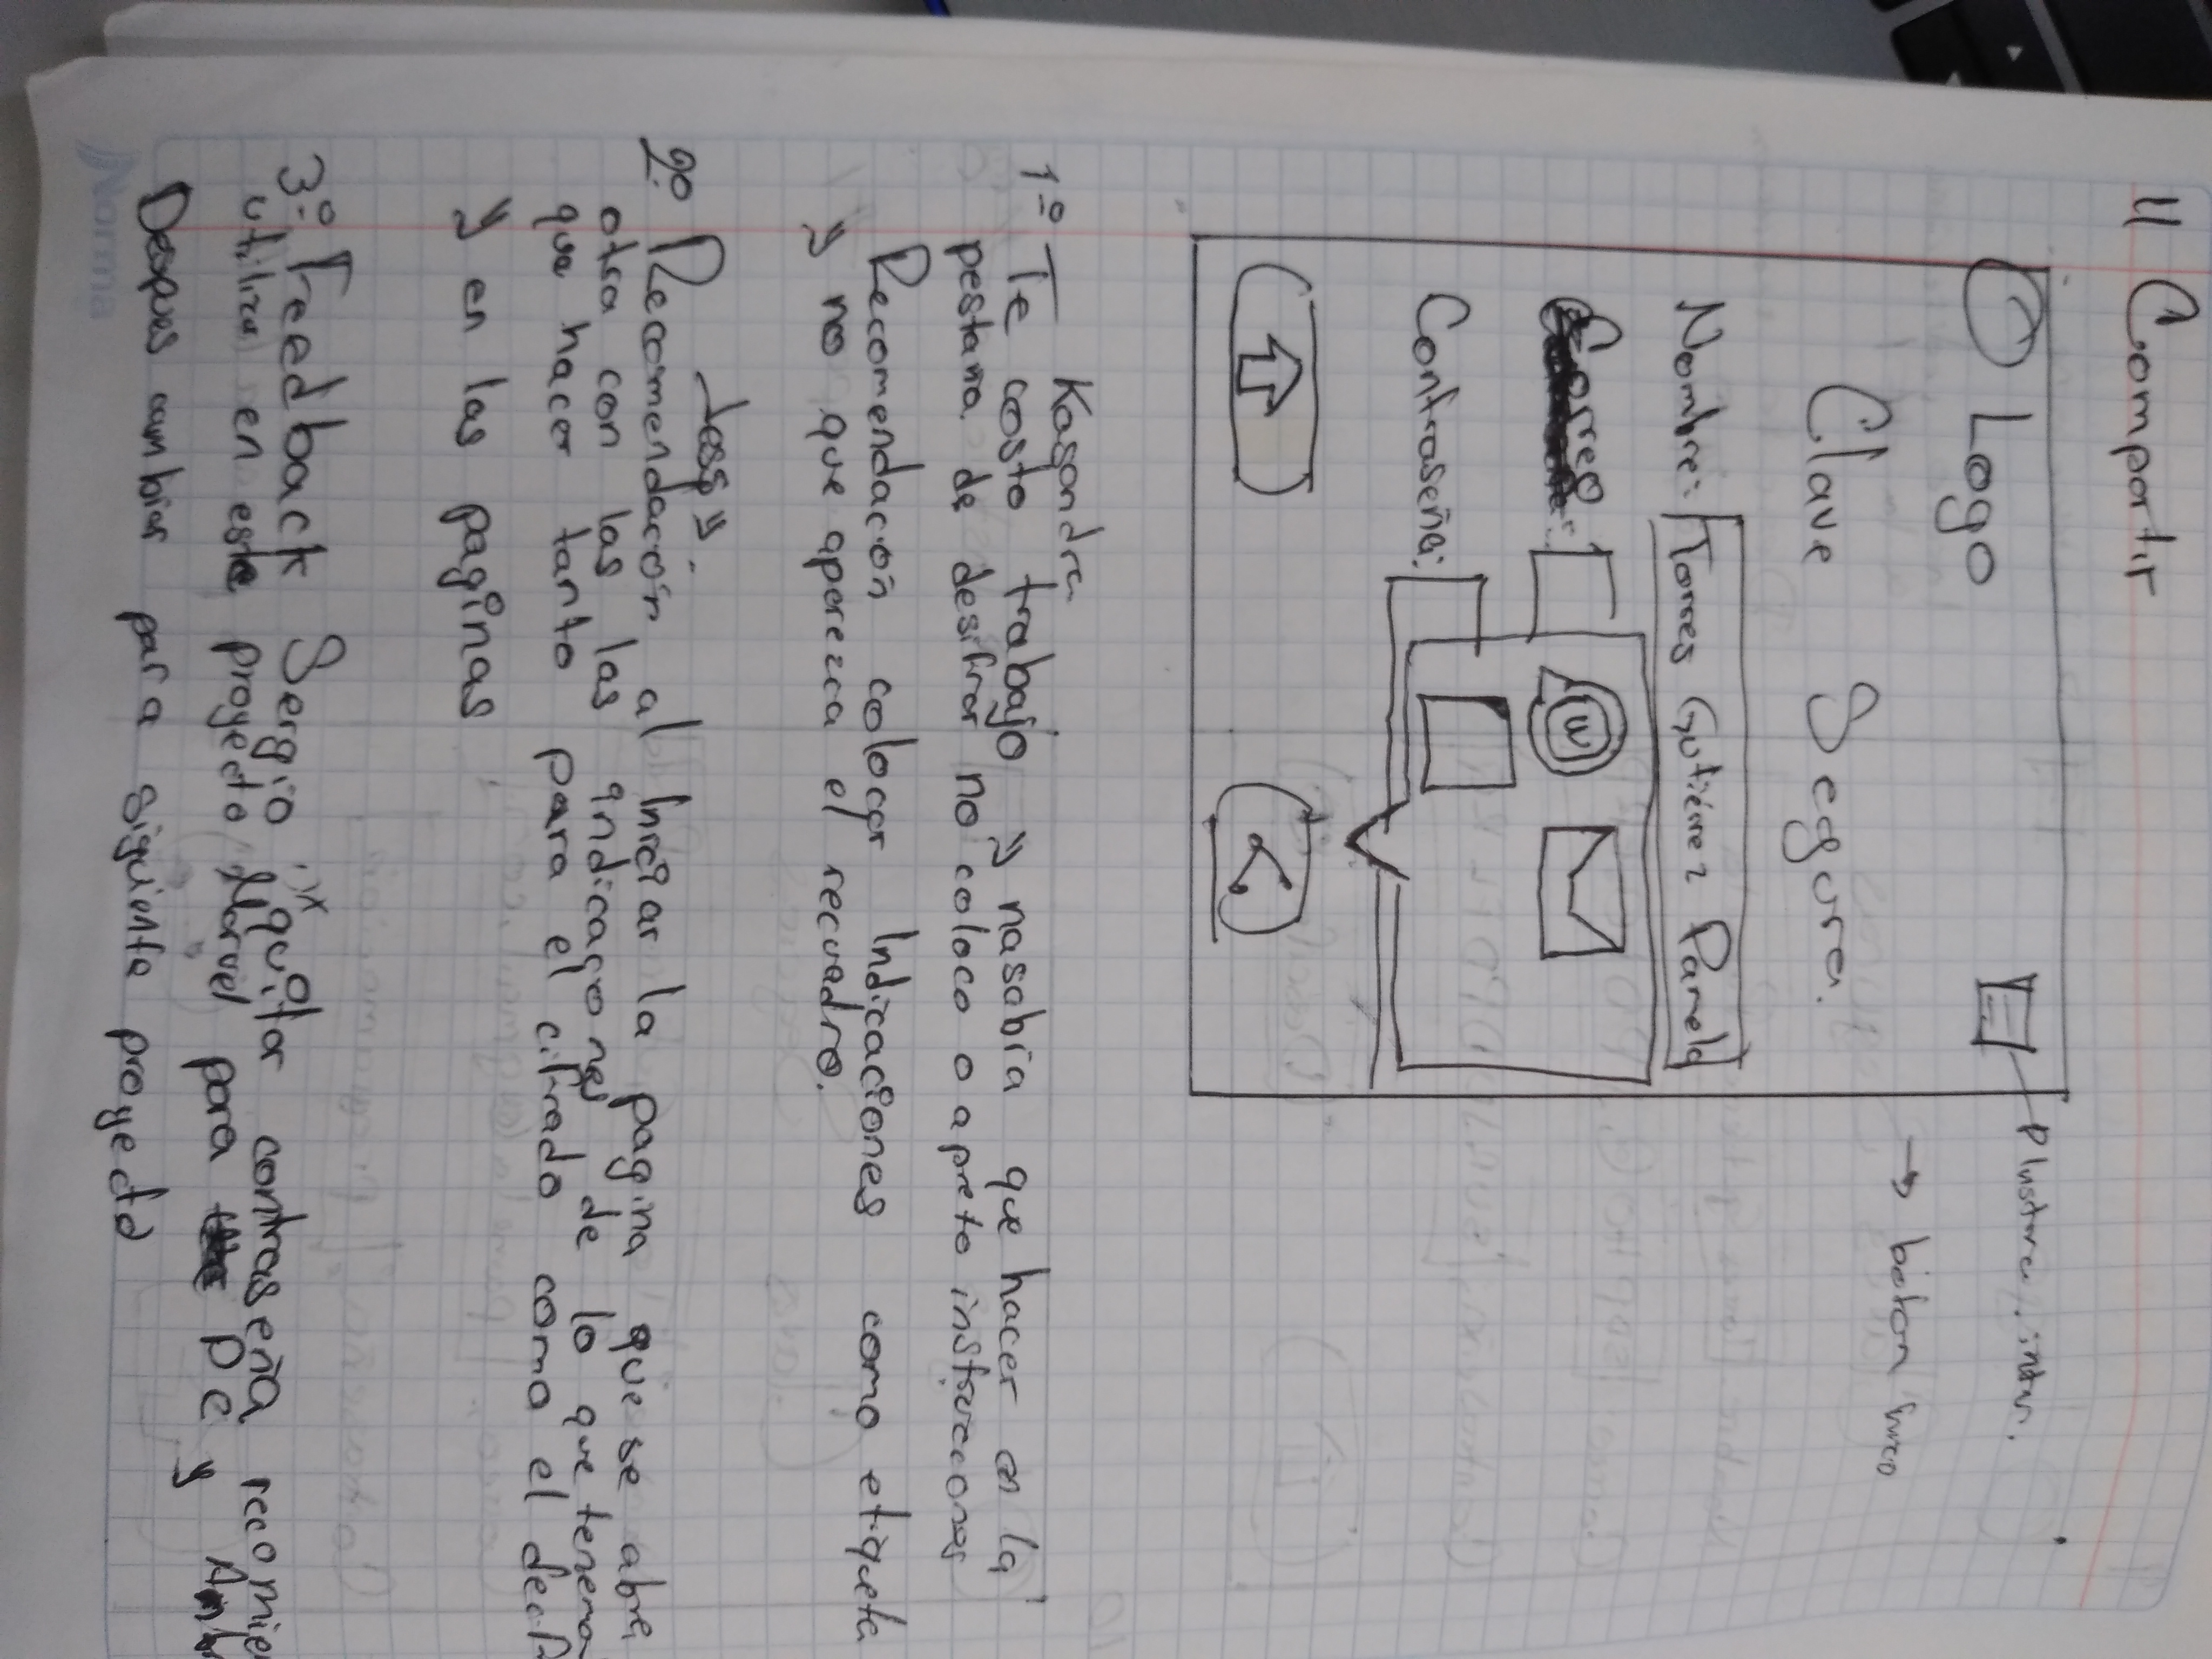 11 Compartir
Logo
→ boton
Clave Segura.
Nombre: Torres Gutiérrez Pamela
Correo
W
Contraseña:
Kasandra
1º Te costo trabajo y nasabria que hacer en la
pestama de desifrar no coloco o apreto instrucciones
Recomendacion colocar Indicaciones como etiqueta
y no que aperezca el recuadro.
Jessy.
2º Recomendacion al Iniciar la pagina que se abre
otra con las las indicaciones de lo que
que hacer tanto para el cifrado como el
y en las paginas
3º Feedback Sergio quitar contraseña
utiliza en este proyecto Marvel para y
Despues cambiar para siguiente proyecto
Norma